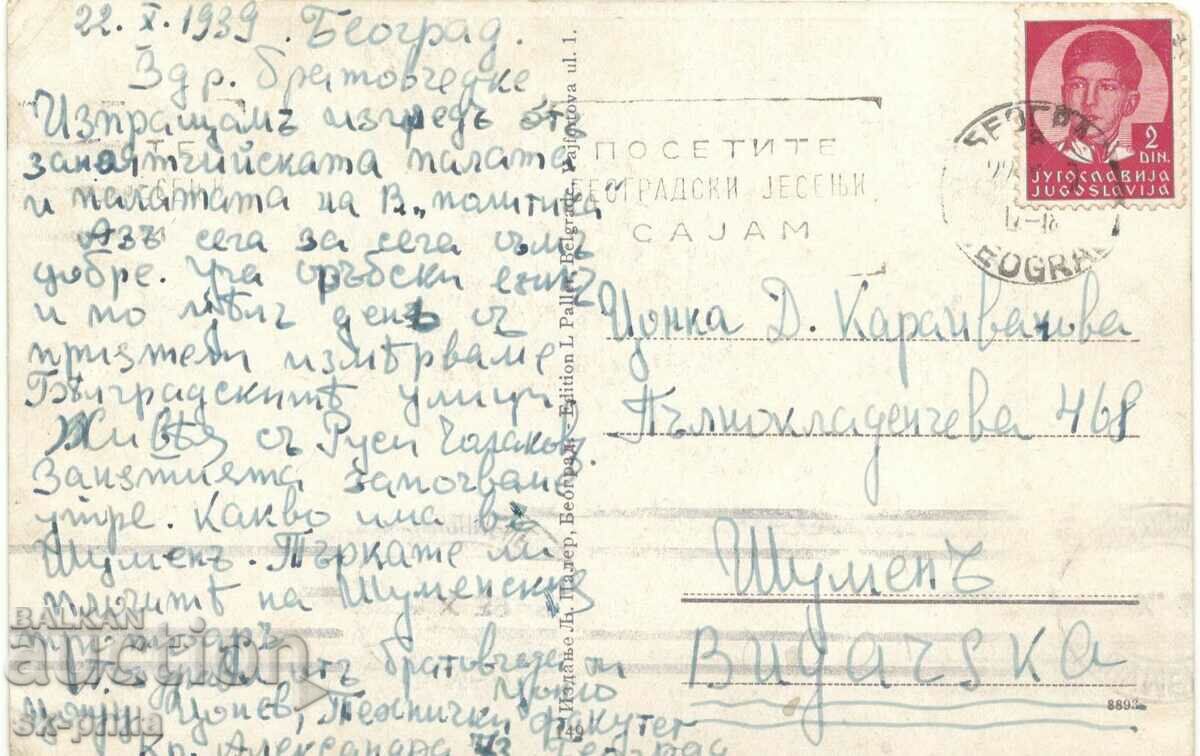 22. X. 1939. Београд.
Здр. братовчедке
Изпращамъ изгледъ отъ
занаятчийската палата
и палатата на В. „политика
Азъ сега за сега съмъ
добре. Уча сръбски езикъ
и по цѣлъ день съ
приятели измѣрваме
Бѣлградскитѣ улици.
Живѣя съ Руси
Занятията започваме
утре. Какво има въ
Шуменъ. Търкате ли
плочитѣ на Шуменския
братовчедъ ти
Цонко
Цонев, Технички факултет
Кр. Александра Београд
Издање Љ. Палер, Београд. - Edition L Paller, Belgrade, Vajfertova ul. 1.
149
ПОСЕТИТЕ
БЕОГРАДСКИ ЈЕСЕЊИ
САЈАМ
БЕОГРАД
BEOGRAD
2
DIN.
ЈУГОСЛАВИЈА
JUGOSLAVIJA
Цонка Д. Караиванова
Пълнокладенчева 468
Шуменъ
Bugarska
8893
BALKAN
auction
sx-prima